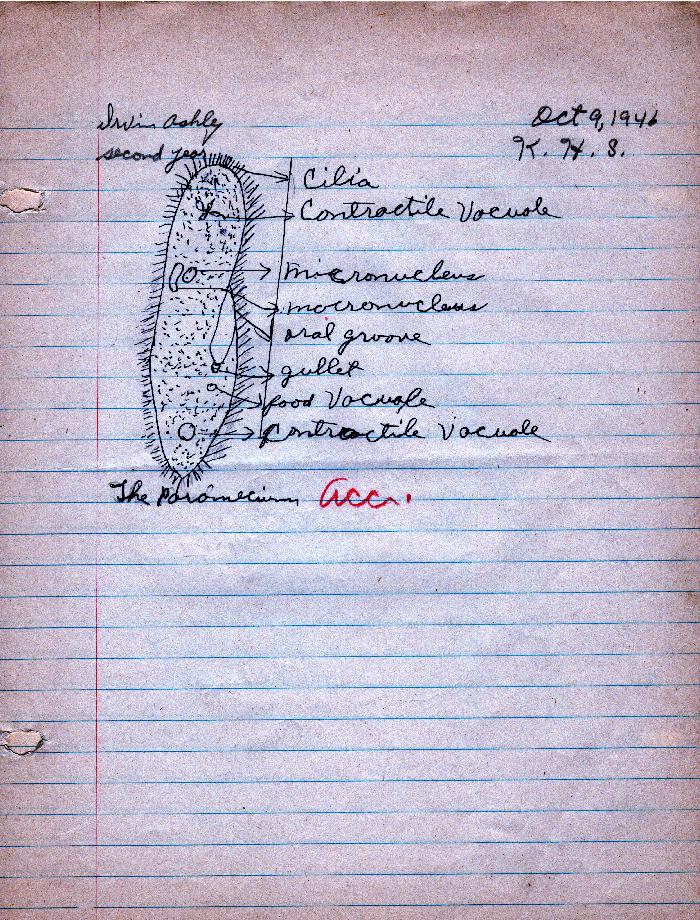 Irvin Ashley
Oct 9, 1946
second year
K. H. S.
Cilia
Contractile Vacuole
micronucleus
macronucleus
oral groove
gullet
food Vacuole
Contractile Vacuole
The Paramecium Acc.